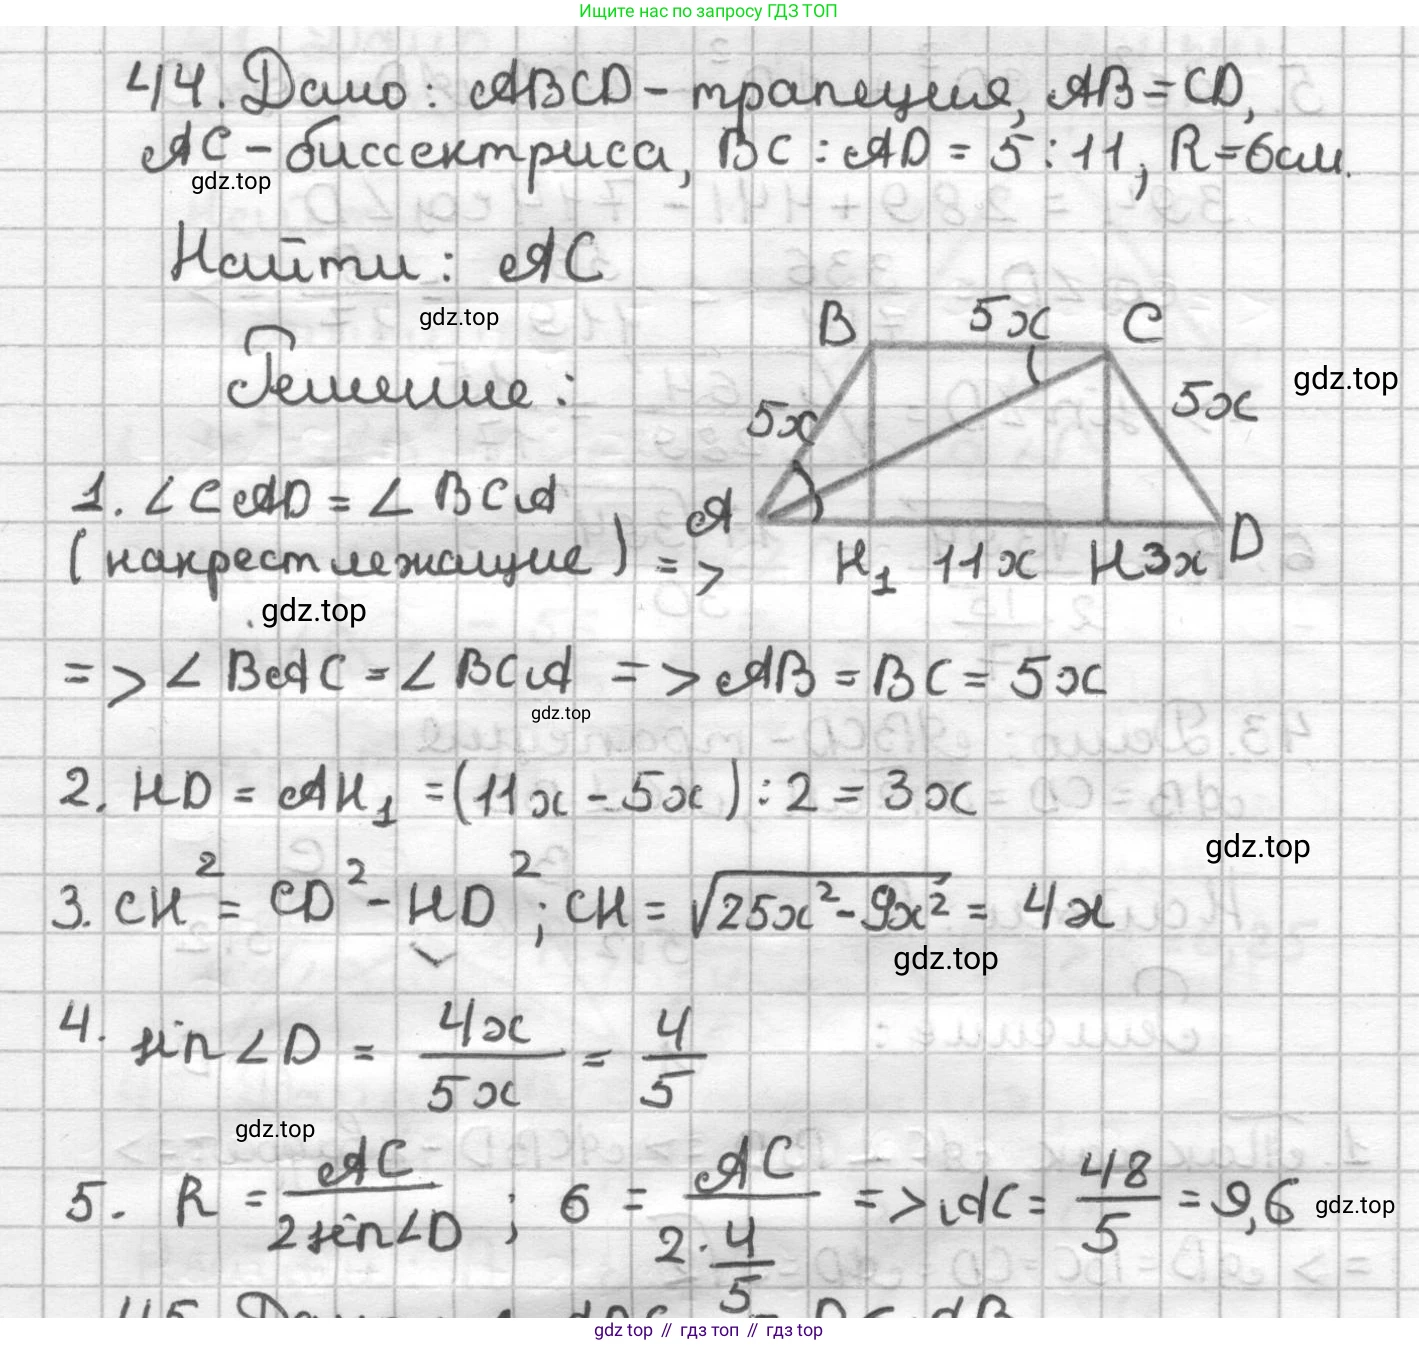 Ищите нас по запросу ГДЗ ТОП
44. Дано: ABCD - трапеция, AB = CD,
AC - биссектриса, BC : AD = 5 : 11, R = 6 см.
gdz.top
Найти: AC
gdz.top
B 5x C
Решение:
gdz.top
5x 5x
1. ∠CAD = ∠BCA
A H₁ 11x H 3x D
(накрест лежащие) =>
gdz.top
=> ∠BAC = ∠BCA => AB = BC = 5x
gdz.top
2. HD = AH₁ = (11x - 5x) : 2 = 3x
gdz.top
3. CH² = CD² - HD²; CH = √(25x² - 9x²) = 4x
gdz.top
4. sin∠D = 4x/5x = 4/5
gdz.top
5. R = AC/(2sin∠D); 6 = AC/(2·4/5) => AC = 48/5 = 9,6
gdz.top
gdz top // гдз топ // гдз top